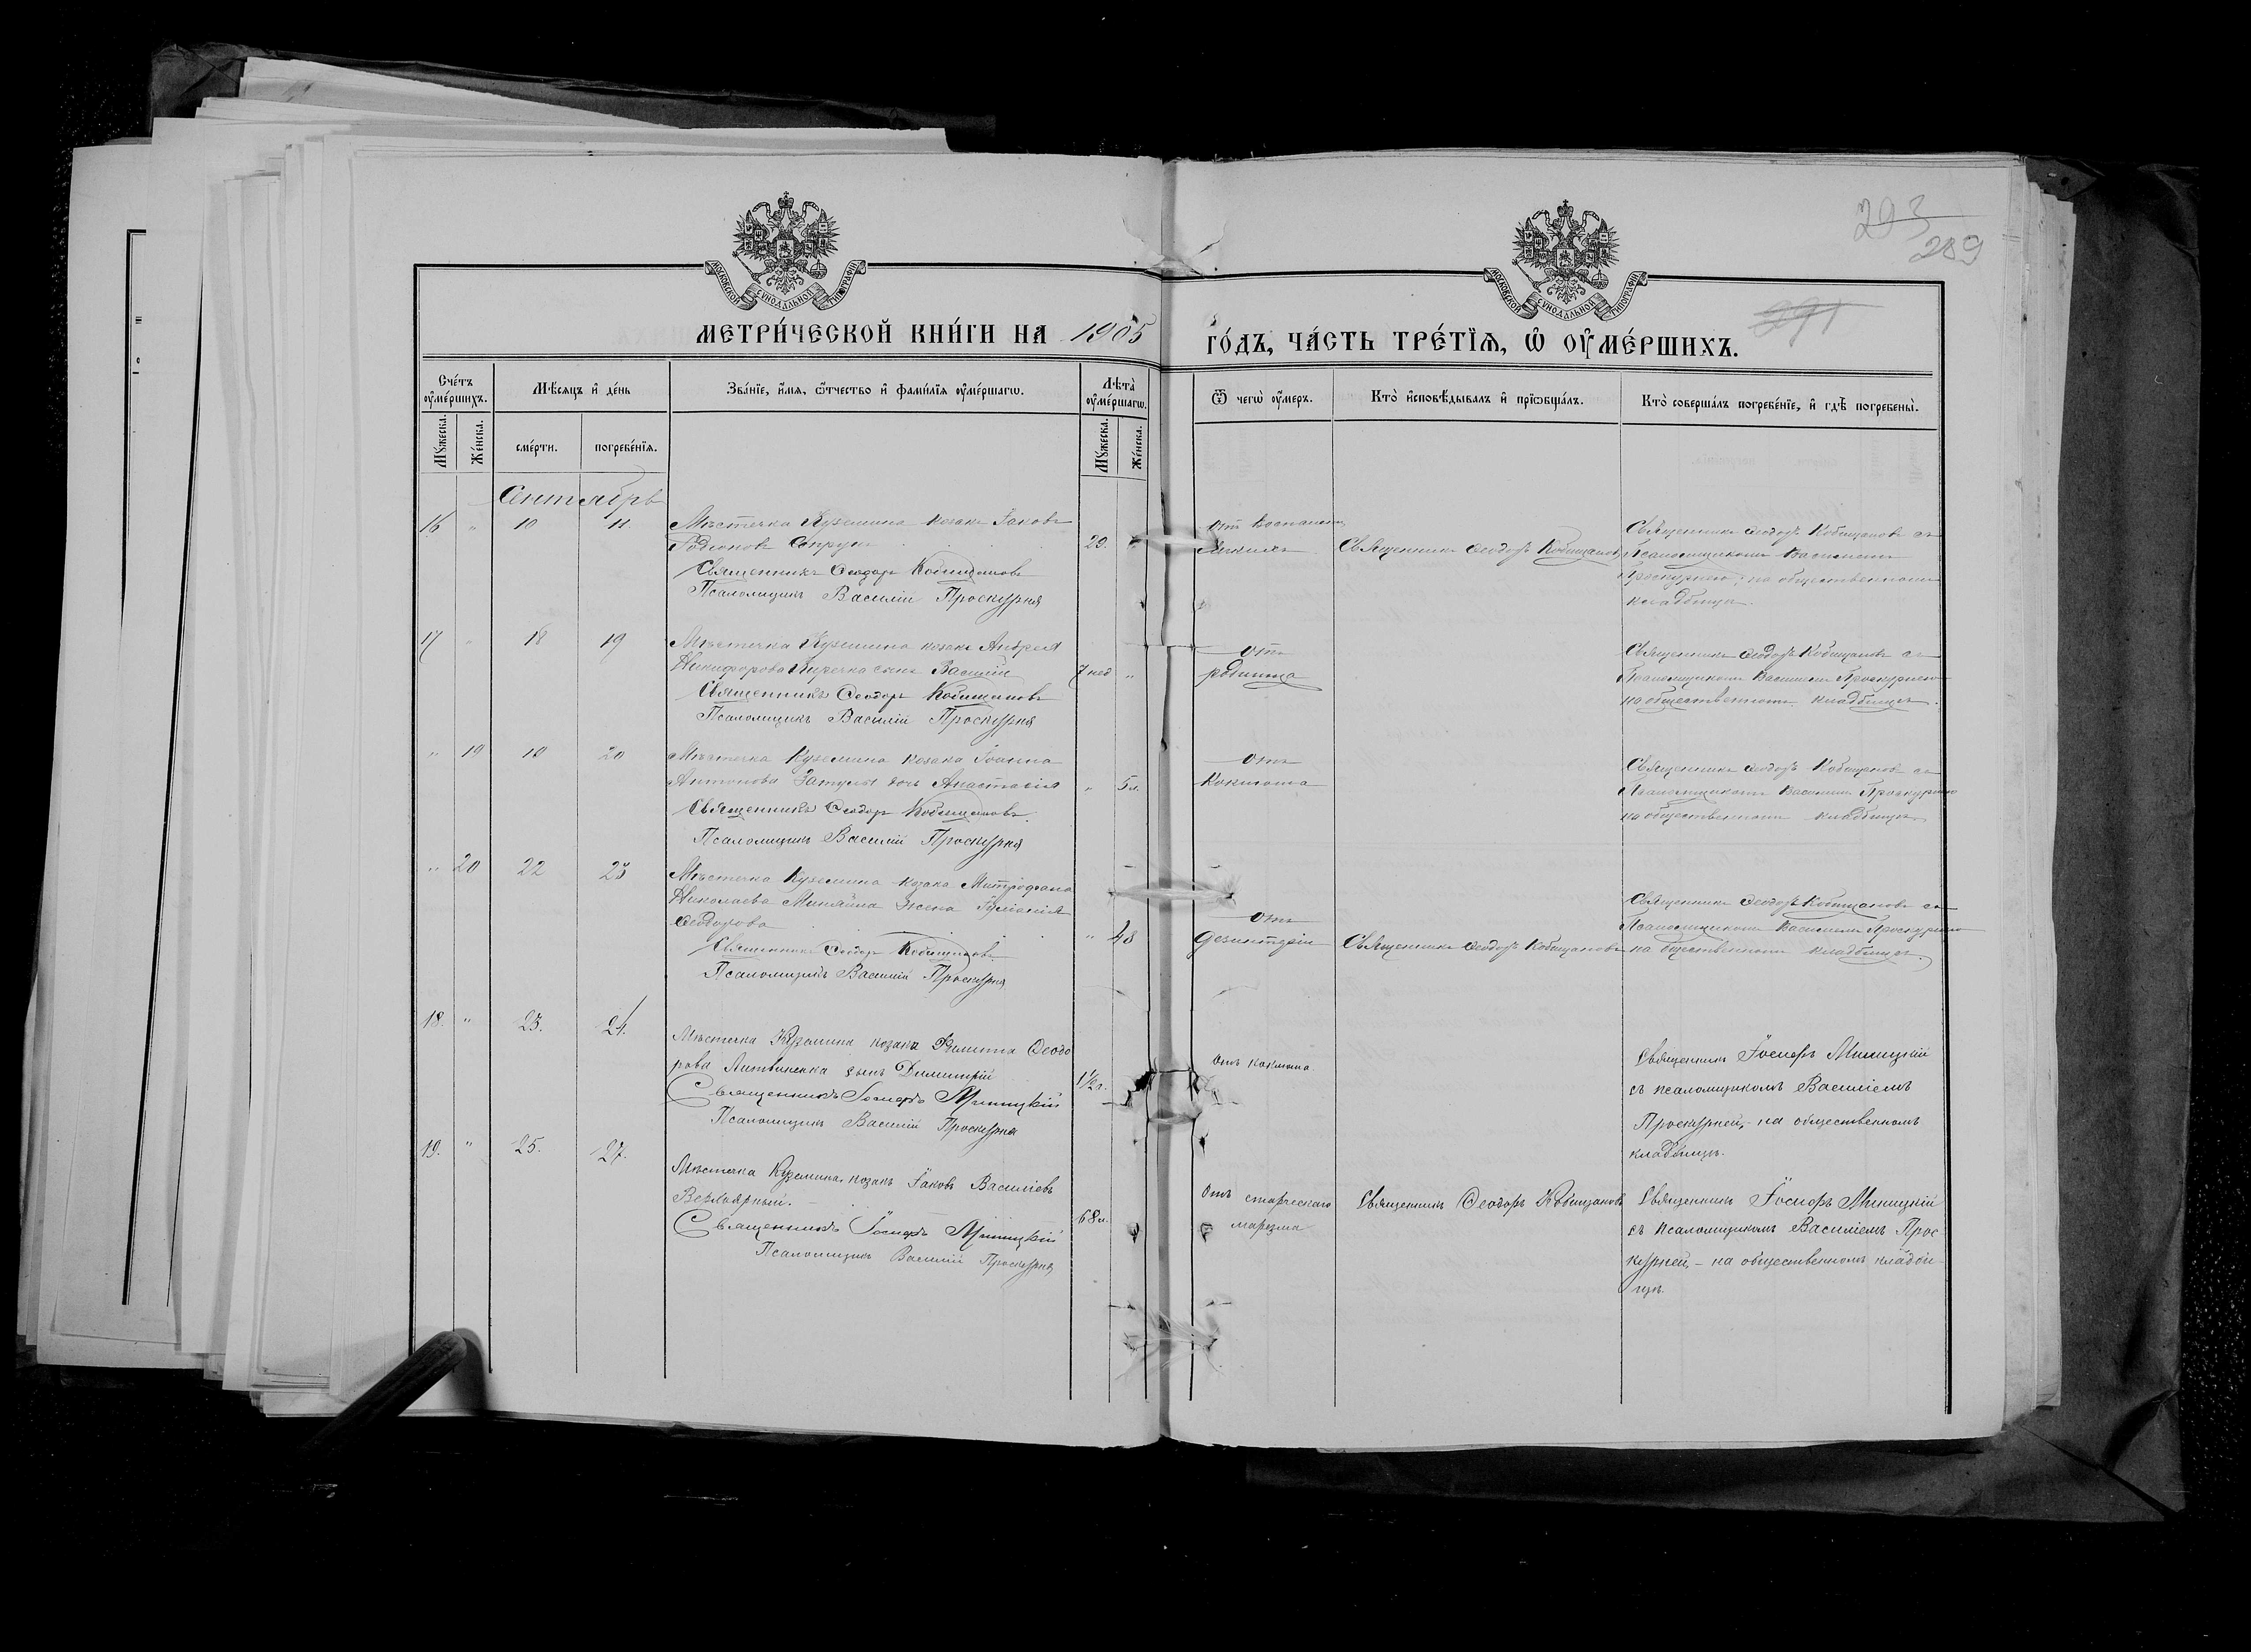 293
289
291
МОСКОВСКОЙ СУНОДАЛЬНОЙ ТИПОГРАФІИ
МОСКОВСКОЙ СУНОДАЛЬНОЙ ТИПОГРАФІИ
МЕТРИ́ЧЕСКОЙ КНИ́ГИ НА 1905 ГО́ДЪ, ЧА́СТЬ ТРЕ́ТЇѦ, Ѡ̑ ОУ҆МЕ́РШИХЪ.
Сче́тъ оу҆ме́ршихъ.
Мѣ́сяцъ и҆ де́нь
Зва́нїе, и҆́мѧ, ѻ҆́тчество и҆ фами́лїѧ оу҆ме́ршагѡ.
Лѣ́та оу҆ме́ршагѡ.
Ѿ чегѡ̀ оу҆́меръ.
Кто̀ и҆сповѣ́дывалъ и҆ прїѡбща́лъ.
Кто̀ соверша́лъ погребе́нїе, и҆ гдѣ̀ погребены̀.
Мꙋ́жеска.
Же́нска.
сме́рти.
погребе́нїѧ.
Мꙋ́жеска.
Же́нска.
Сентябрь
16 " 10 11 Мѣстечка Куземина козакъ Іаковъ
Родіоновъ Супрунъ 29. "
Священникъ Ѳеодоръ Кобищановъ
Псаломщикъ Василій Проскурня
Священникъ Ѳеодоръ Кобищановъ
Священникъ Ѳеодоръ Кобищановъ съ
Псаломщикомъ Василіемъ
Проскурнею; на общественномъ
кладбищѣ.
17 " 18 19 Мѣстечка Куземина козака Андрея
Никифорова Киречка сынъ Василій 7 нед "
Священникъ Ѳеодоръ Кобищановъ
Псаломщикъ Василій Проскурня
отъ
родимца
Священникъ Ѳеодоръ Кобищановъ съ
Псаломщикомъ Василіемъ Проскурнею
на общественномъ кладбищѣ.
" 19 19 20 Мѣстечка Куземина козака Іоанна
Антонова Затулы дочь Анастасія " 5 л.
Священникъ Ѳеодоръ Кобищановъ.
Псаломщикъ Василій Проскурня
отъ
Коклюша
Священникъ Ѳеодоръ Кобищановъ съ
Псаломщикомъ Василіемъ Проскурнею
на общественномъ кладбищѣ
" 20 22 23 Мѣстечка Куземина козака Митрофана
Николаева Миняйла жена Іуліанія
Ѳеодорова " 48
Священникъ Ѳеодоръ Кобищановъ
Псаломщикъ Василій Проскурня
отъ
дезинтеріи
Священникъ Ѳеодоръ Кобищановъ
Священникъ Ѳеодоръ Кобищановъ съ
Псаломщикомъ Василіемъ Проскурнею
на общественномъ кладбищѣ.
18. " 23. 24. Мѣстечка Куземина козака Филиппа Ѳеодо
рова Литвиненка сынъ Димитрій 1½ г.
Священникъ Іосифъ Милицкій
Псаломщикъ Василій Проскурня
Отъ коклюша.
Священникъ Іосифъ Милицкій
съ псаломщикомъ Василіемъ
Проскурней, - на общественномъ
кладбищѣ.
19. " 25. 27. Мѣстечка Куземина, козакъ Іаковъ Василіевъ
Верлоярный. 68 л.
Священникъ Іосифъ Милицкій
Псаломщикъ Василій Проскурня
Отъ старческаго
маразма
Священникъ Ѳеодоръ Кобищановъ
Священникъ Іосифъ Милицкій
съ псаломщикомъ Василіемъ Прос
курней, - на общественномъ кладби
щѣ.